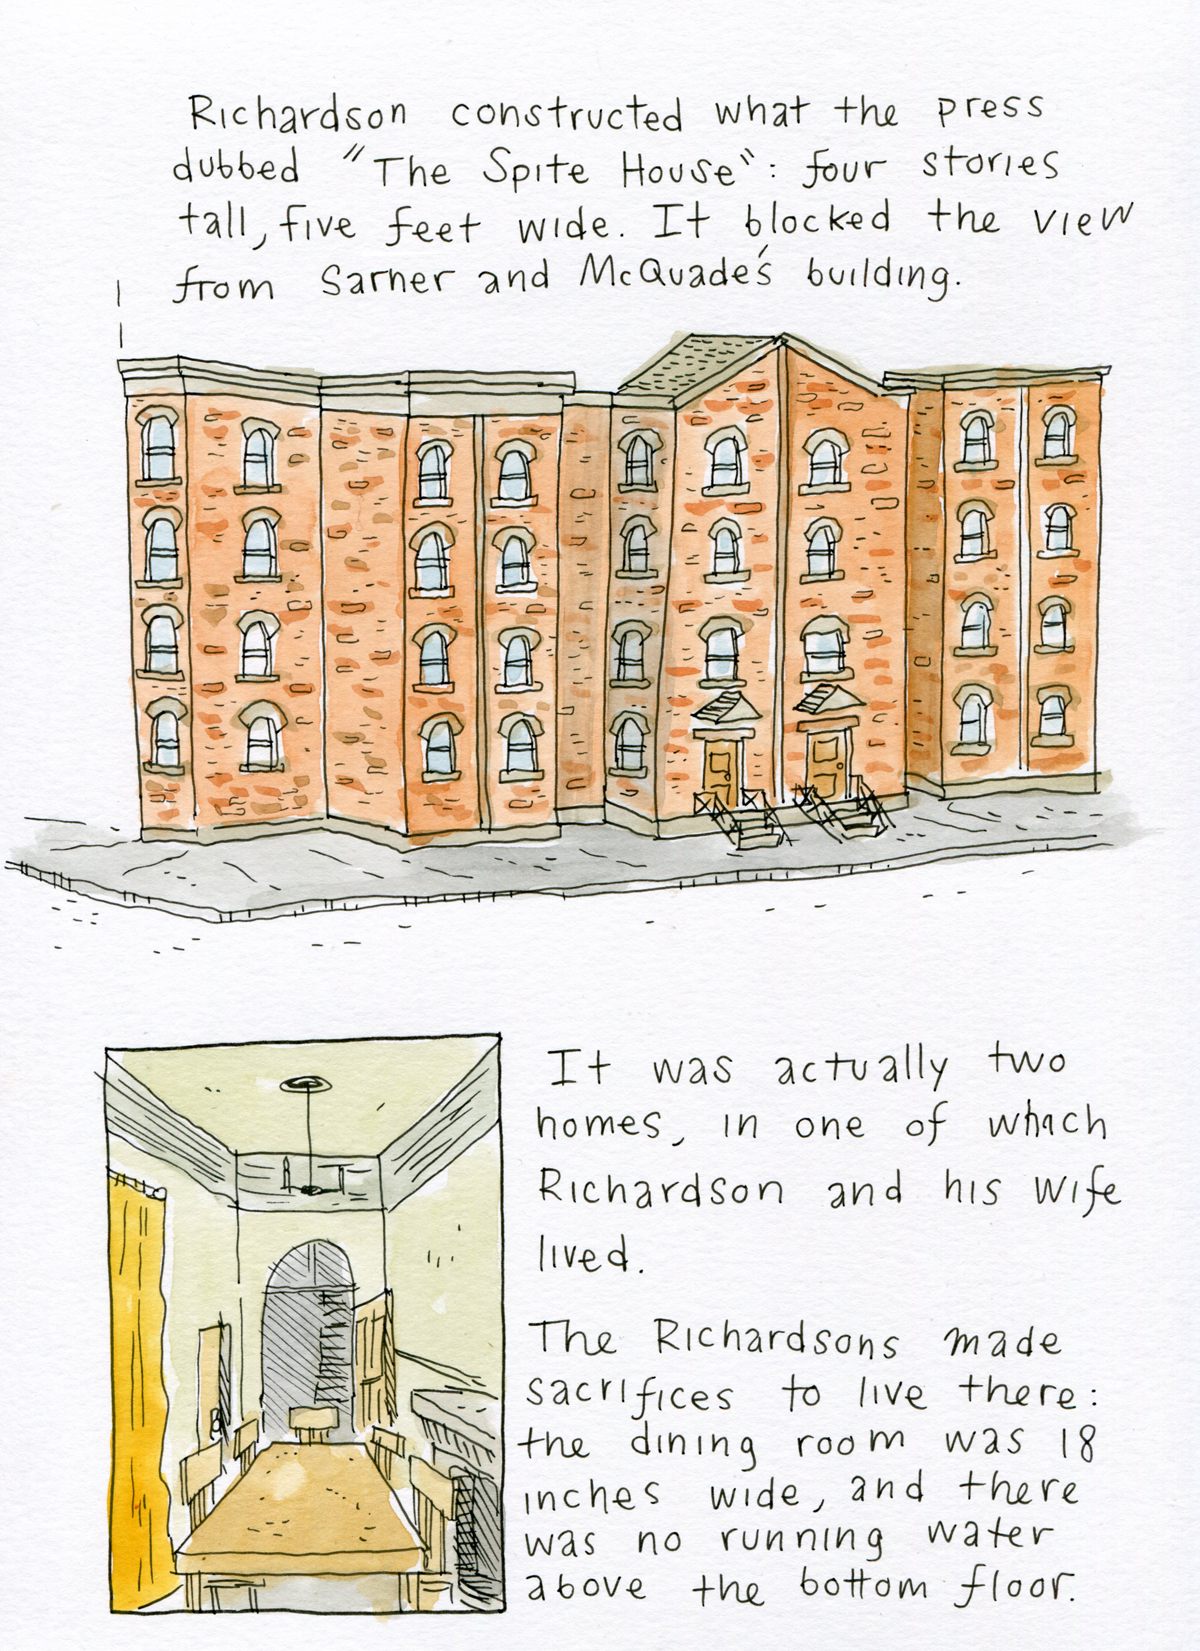 Richardson constructed what the press
dubbed "The Spite House": four stories
tall, five feet wide. It blocked the view
from Sarner and McQuade's building.
It was actually two
homes, in one of which
Richardson and his wife
lived.
The Richardsons made
sacrifices to live there:
the dining room was 18
inches wide, and there
was no running water
above the bottom floor.